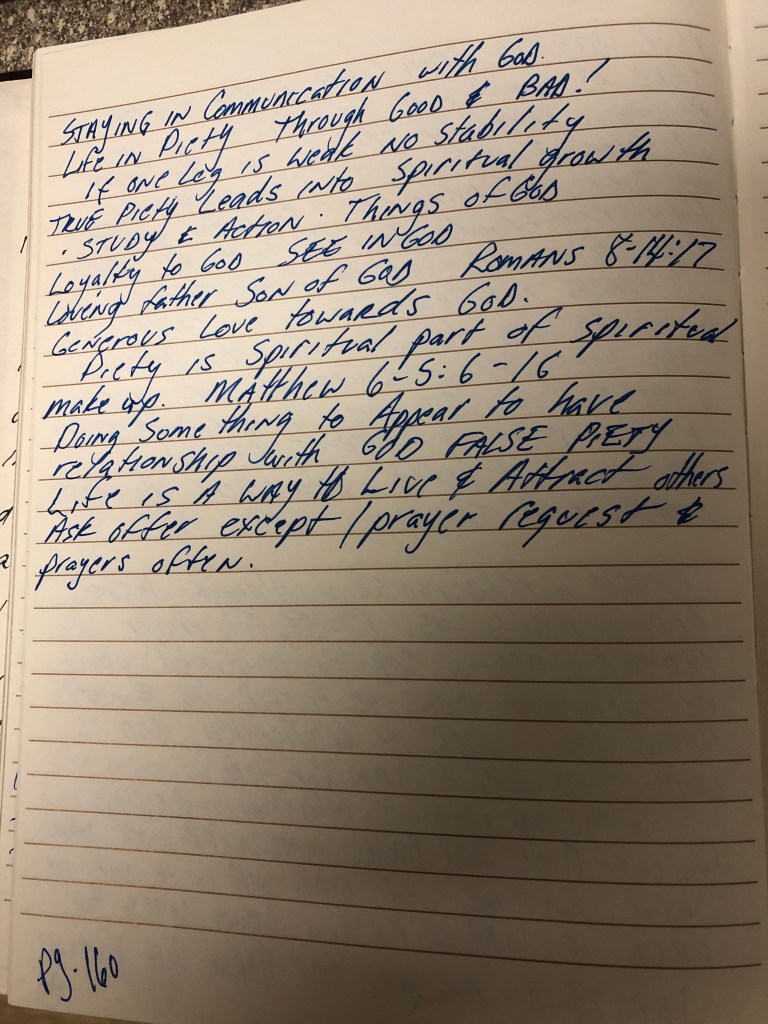 STAYING IN Communication with GOD.
Life in Piety Through GOOD & BAD!
if one Leg is weak NO stability
TRUE Piety Leads into spiritual growth
. STUDY & Action. Things of GOD
Loyalty to GOD SEE IN GOD
Loving father SON of GOD ROMANS 8-14:17
Generous Love towards GOD.
Piety is spiritual part of spiritual
make up. MAtthew 6-5:6-16
Doing Something to Appear to have
relationship with GOD FALSE PiETY
Life is A WAY to Live & Attract others
Ask offer except / prayer request &
prayers often.
Pg. 160